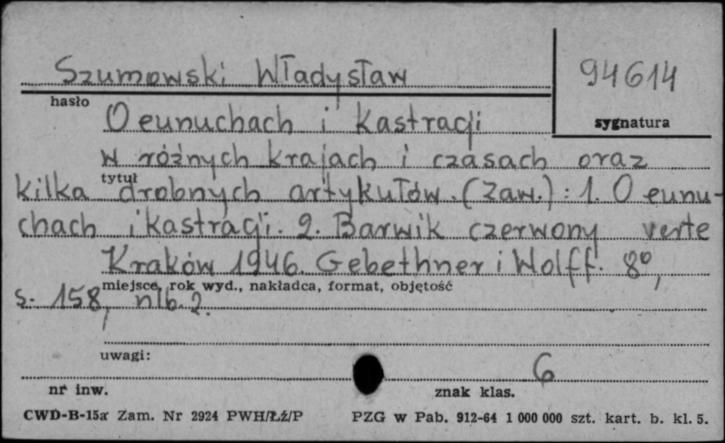 Szumowski Władysław
94614
hasło
sygnatura
O eunuchach i kastracji
w różnych krajach i czasach oraz
tytuł
kilka drobnych artykułów. (Zaw.): 1. O eunu-
chach i kastracji. 2. Barwik czerwony verte
Kraków 1946. Gebethner i Wolff. 8°,
miejsce, rok wyd., nakładca, format, objętość
s. 158, nlb. 2.
uwagi:
6
nr inw.
znak klas.
CWD-B-15a Zam. Nr 2924 PWH/Łź/P PZG w Pab. 912-64 1 000 000 szt. kart. b. kl. 5.